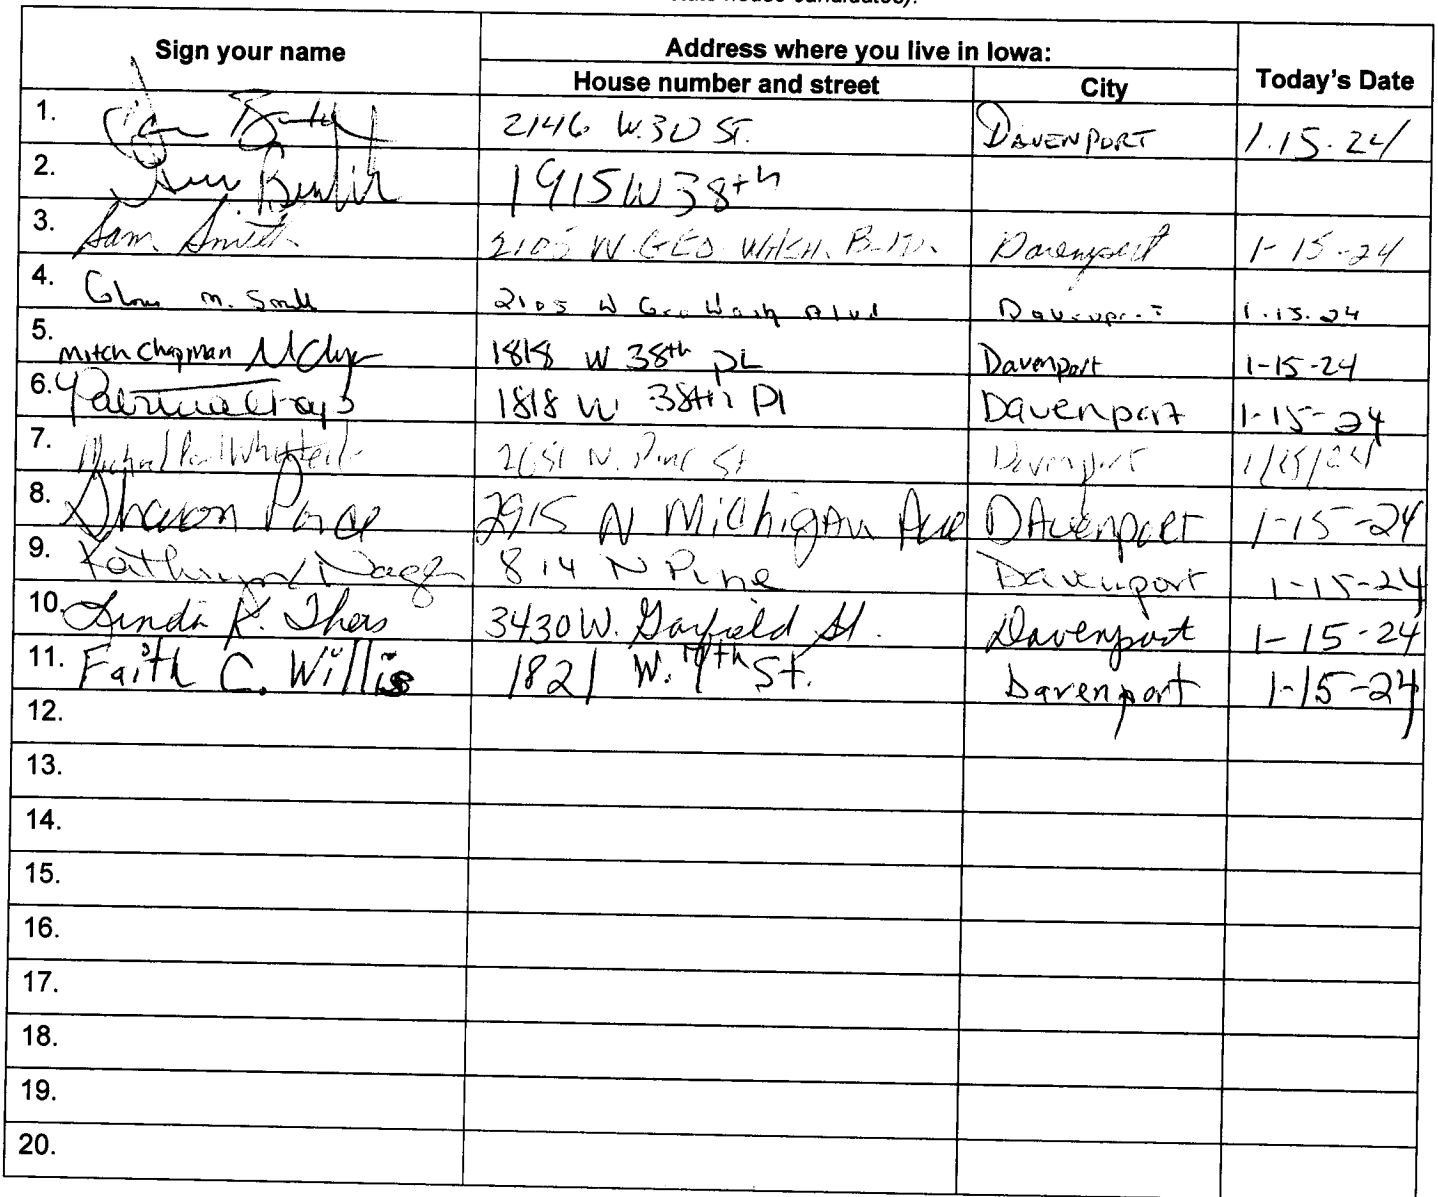 house candidates).
Sign your name
Address where you live in Iowa:
House number and street
City
Today's Date
1. 2146 W. 3D ST. DAVENPORT 1.15.24
2. 1915 W 38th
3. Sam Smith 2105 W. GEO. WASH. Davenport 1-15-24
4. M. Smith 2105 W Geo Wash Blvd Davenport 1.15.24
5. Mitch Chapman 1818 W 38th PL Davenport 1-15-24
6. 1818 W 38th Pl Davenport 1-15-24
7. Michael N. Pine St Davenport 1/15/24
8. Sharon 2915 N Michigan Ave DAvenport 1-15-24
9. Kathryn 814 N Pine Davenport 1-15-24
10. Linda K. Thers 3430 W. Garfield St. Davenport 1-15-24
11. Faith C. Willis 1821 W. 7th St. Davenport 1-15-24
12.
13.
14.
15.
16.
17.
18.
19.
20.